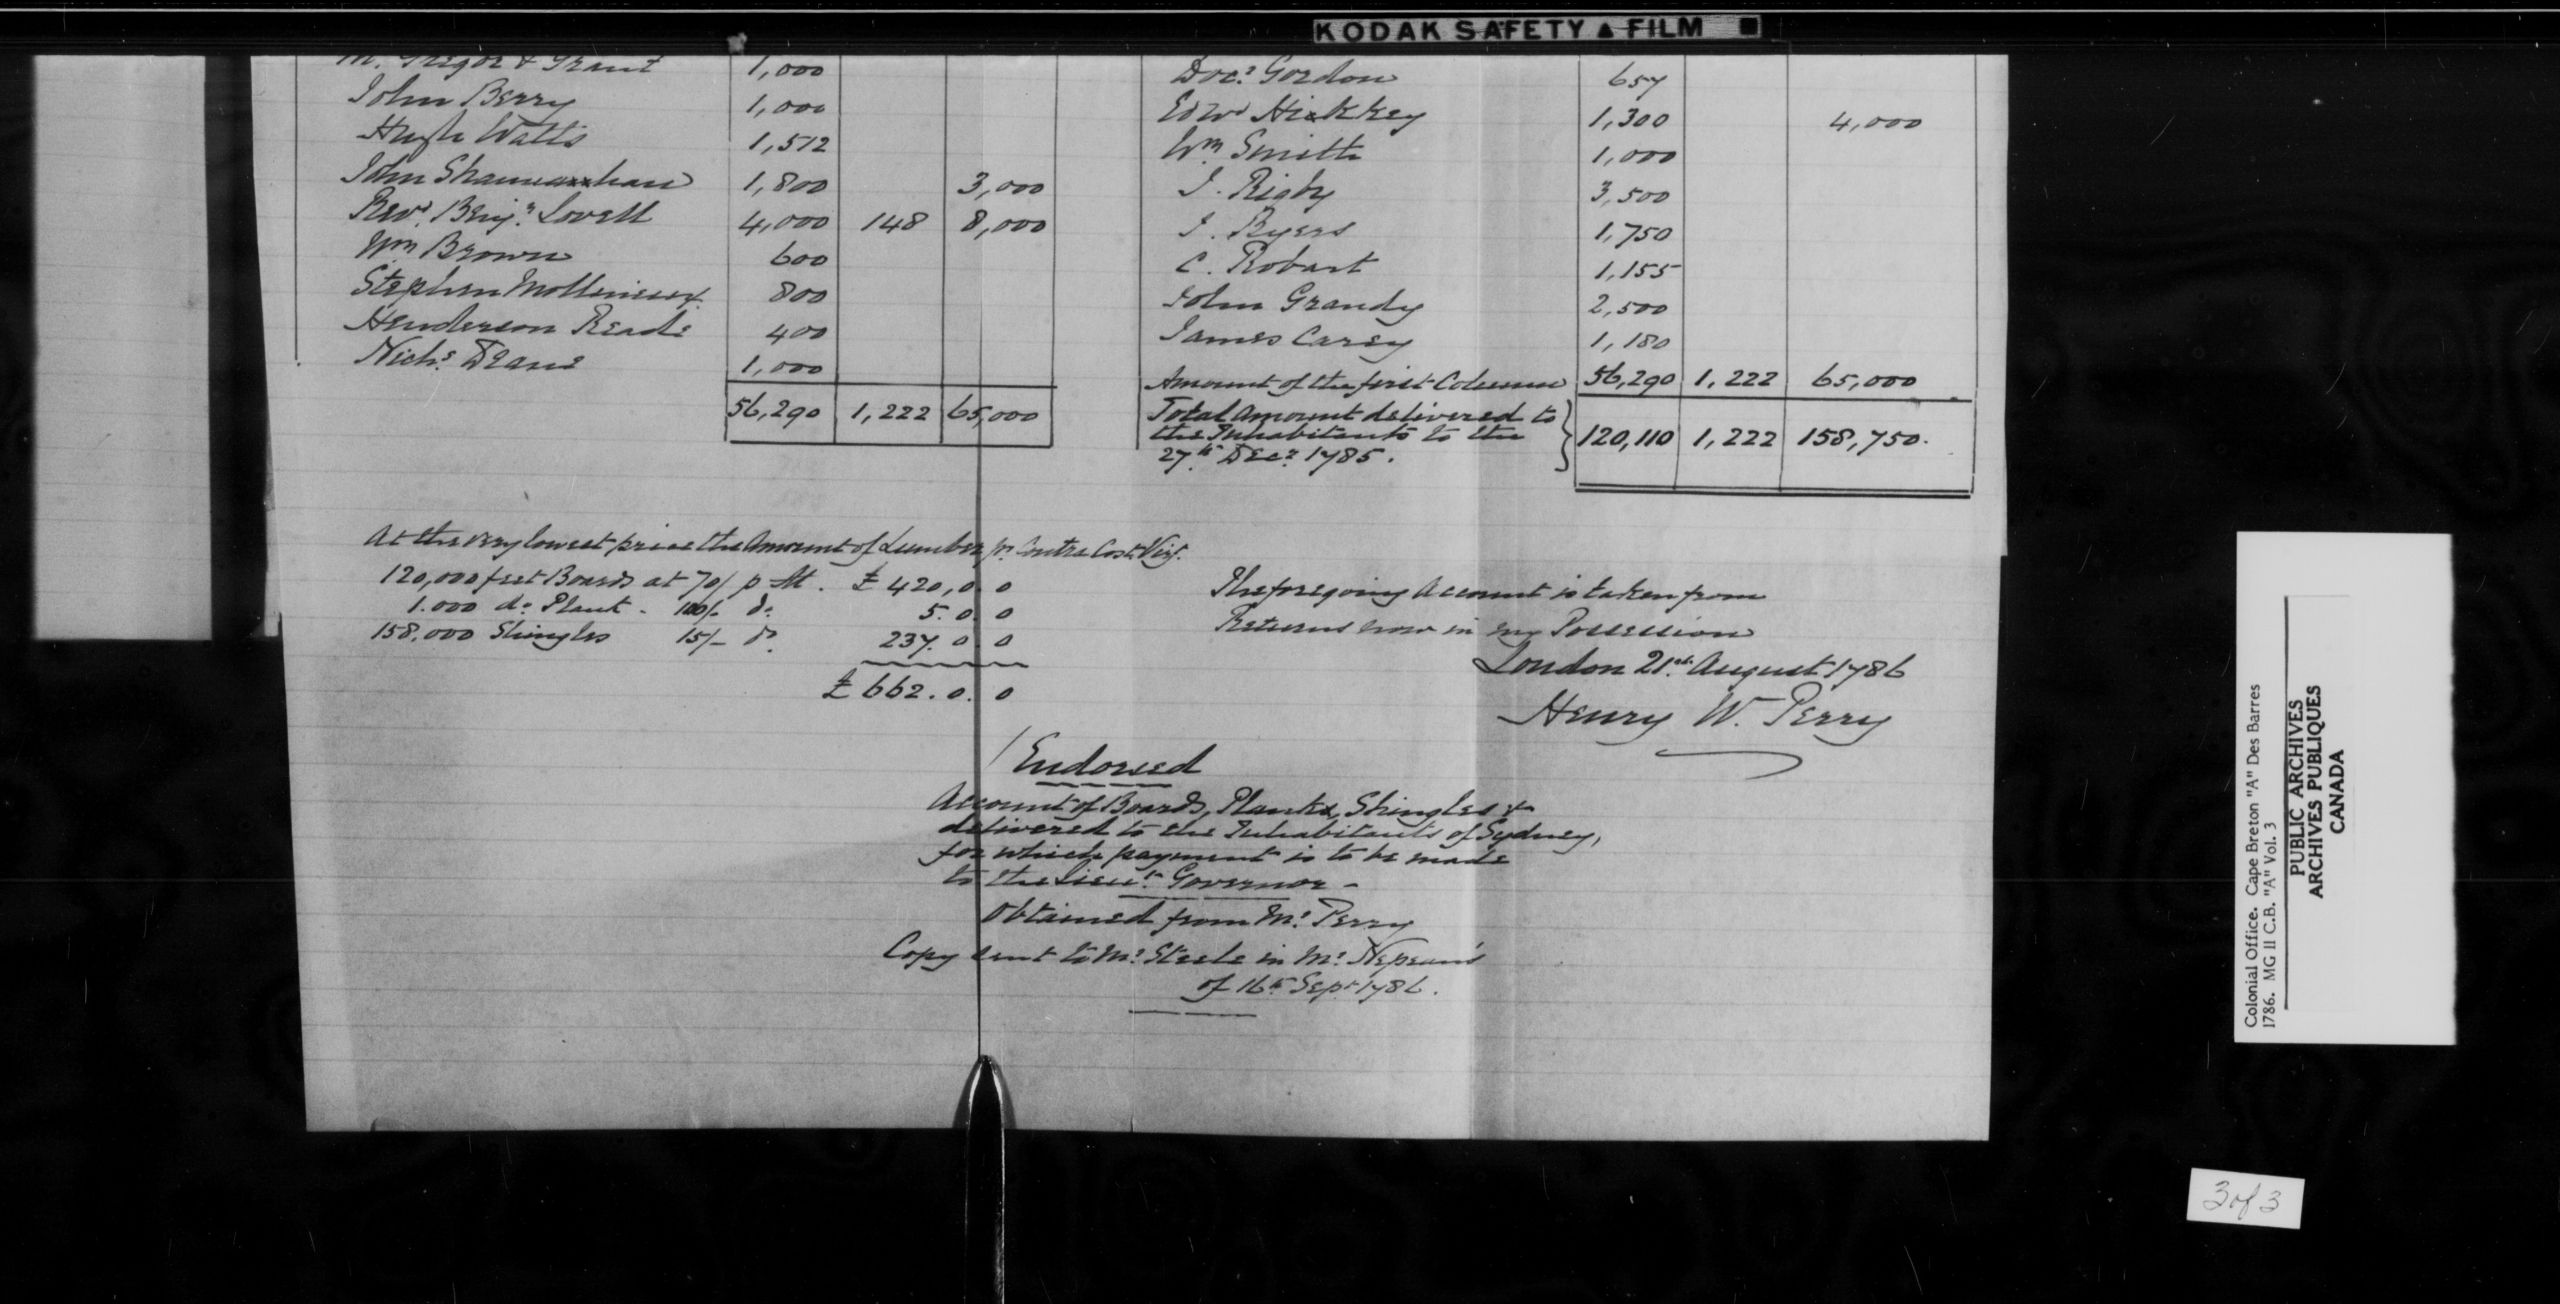 KODAK SAFETY ▲ FILM ■
Mc Gregor & Grant 1,000
John Berry 1,000
Hugh Watts 1,512
John 1,800 3,000
Revd. Benjn. Lovell 4,000 148 8,000
Wm Brown 600
Stephen 800
Henderson Reade 400
Nichs. Deane 1,000
56,290 1,222 65,000
Docr. Gordon 657
Edwd Hickkey 1,300 4,000
Wm Smith 1,000
J. Rigby 3,500
J. Byers 1,750
C. Robart 1,155
John Grandy 2,500
James Carey 1,180
Amount of the first Column 56,290 1,222 65,000
Total amount delivered to
the Inhabitants to the } 120,110 1,222 158,750.
27th. Decr. 1785.
At the very lowest price the Amount of Lumber pr. Contra Cost. Vizt.
120,000 feet Boards at 70/ p M. £ 420,0.0
1.000 do. Plank. 100/- do. 5.0.0
158.000 Shingles 15/- do. 237.0.0
£ 662.0.0
The foregoing Account is taken from
Returns now in my Possession
London 21st. August 1786
Henry W. Perry
/Endorsed
Account of Boards, Planks, Shingles &
delivered to the Inhabitants of Sydney,
for which payment is to be made
to the Lieut. Governor -
Obtained from Mr. Perry
Copy sent to Mr. Steele in Mr. Nepean's
of 16th Sept. 1786.
Colonial Office. Cape Breton "A" Des Barres
1786. MG 11 C.B. "A" Vol. 3
PUBLIC ARCHIVES
ARCHIVES PUBLIQUES
CANADA
3 of 3